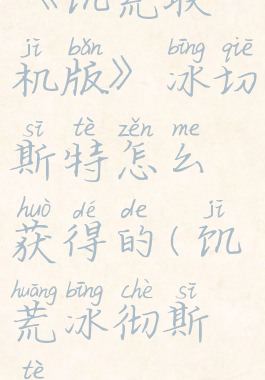 《饥荒联
jī bǎn bīng qiē
机版》 冰切
sī tè zěn me
斯特怎么
huò dé de jī
获得的(饥
huāng bīng chè sī
荒冰彻斯
tè